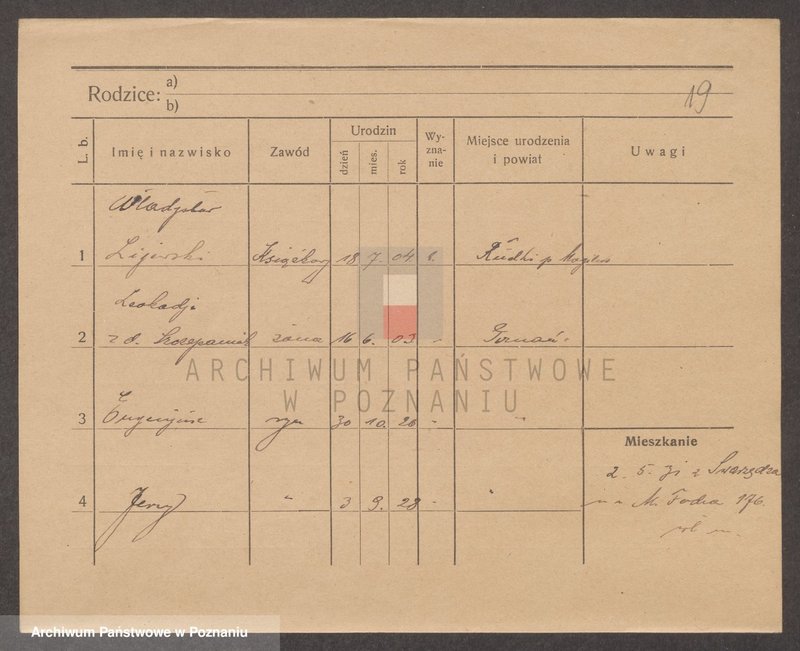 Rodzice: a)
b)
19
L. b.
Imię i nazwisko
Zawód
Urodzin
dzień
mies.
rok
Wy-
zna-
nie
Miejsce urodzenia
i powiat
Uwagi
Władysław
1 18 7. 04 Rudki p.
Leokadja
2 z d. Szczepaniak żona 16 6. 03 - Poznań
3 Eugenjusz syn 30 10. 26 - "
4 Jerzy " 3 9. 28 - "
Mieszkanie
2. 5. 31 z Swarzędza
na M. Focha 176
ARCHIWUM PAŃSTWOWE
W POZNANIU
Archiwum Państwowe w Poznaniu